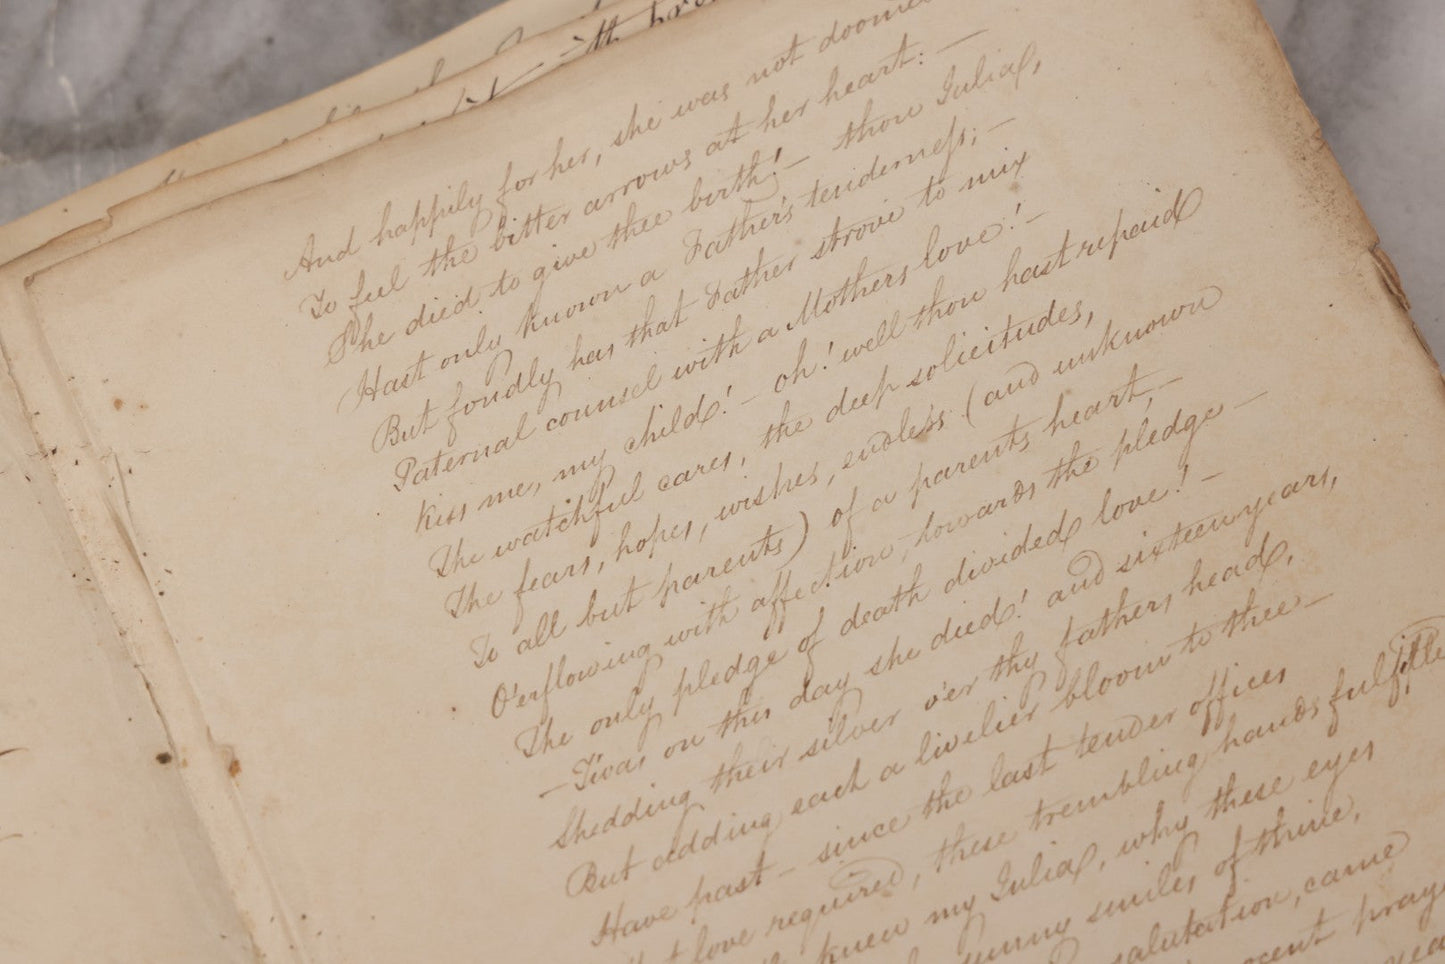 And happily for her, she was not doomed
To feel the bitter arrows at her heart: —
She died to give thee birth! — thou Julia,
Hast only known a Father's tenderness; —
But fondly has that Father strove to mix
Paternal counsel with a Mothers love! —
Kiss me, my child! — oh! well thou hast repaid
The watchful cares, the deep solicitudes,
The fears, hopes, wishes, endless (and unknown
To all but parents) of a parents heart, —
O'erflowing with affection, towards the pledge —
The only pledge of death divided love! —
— Twas on this day she died! and sixteen years,
Shedding their silver o'er thy fathers head,
But adding each a livelier bloom to thee —
Have past — since the last tender offices
love required, these trembling hands fulfilled
knew my Julia, why these eyes
sunny smiles of thine,
salutation, came